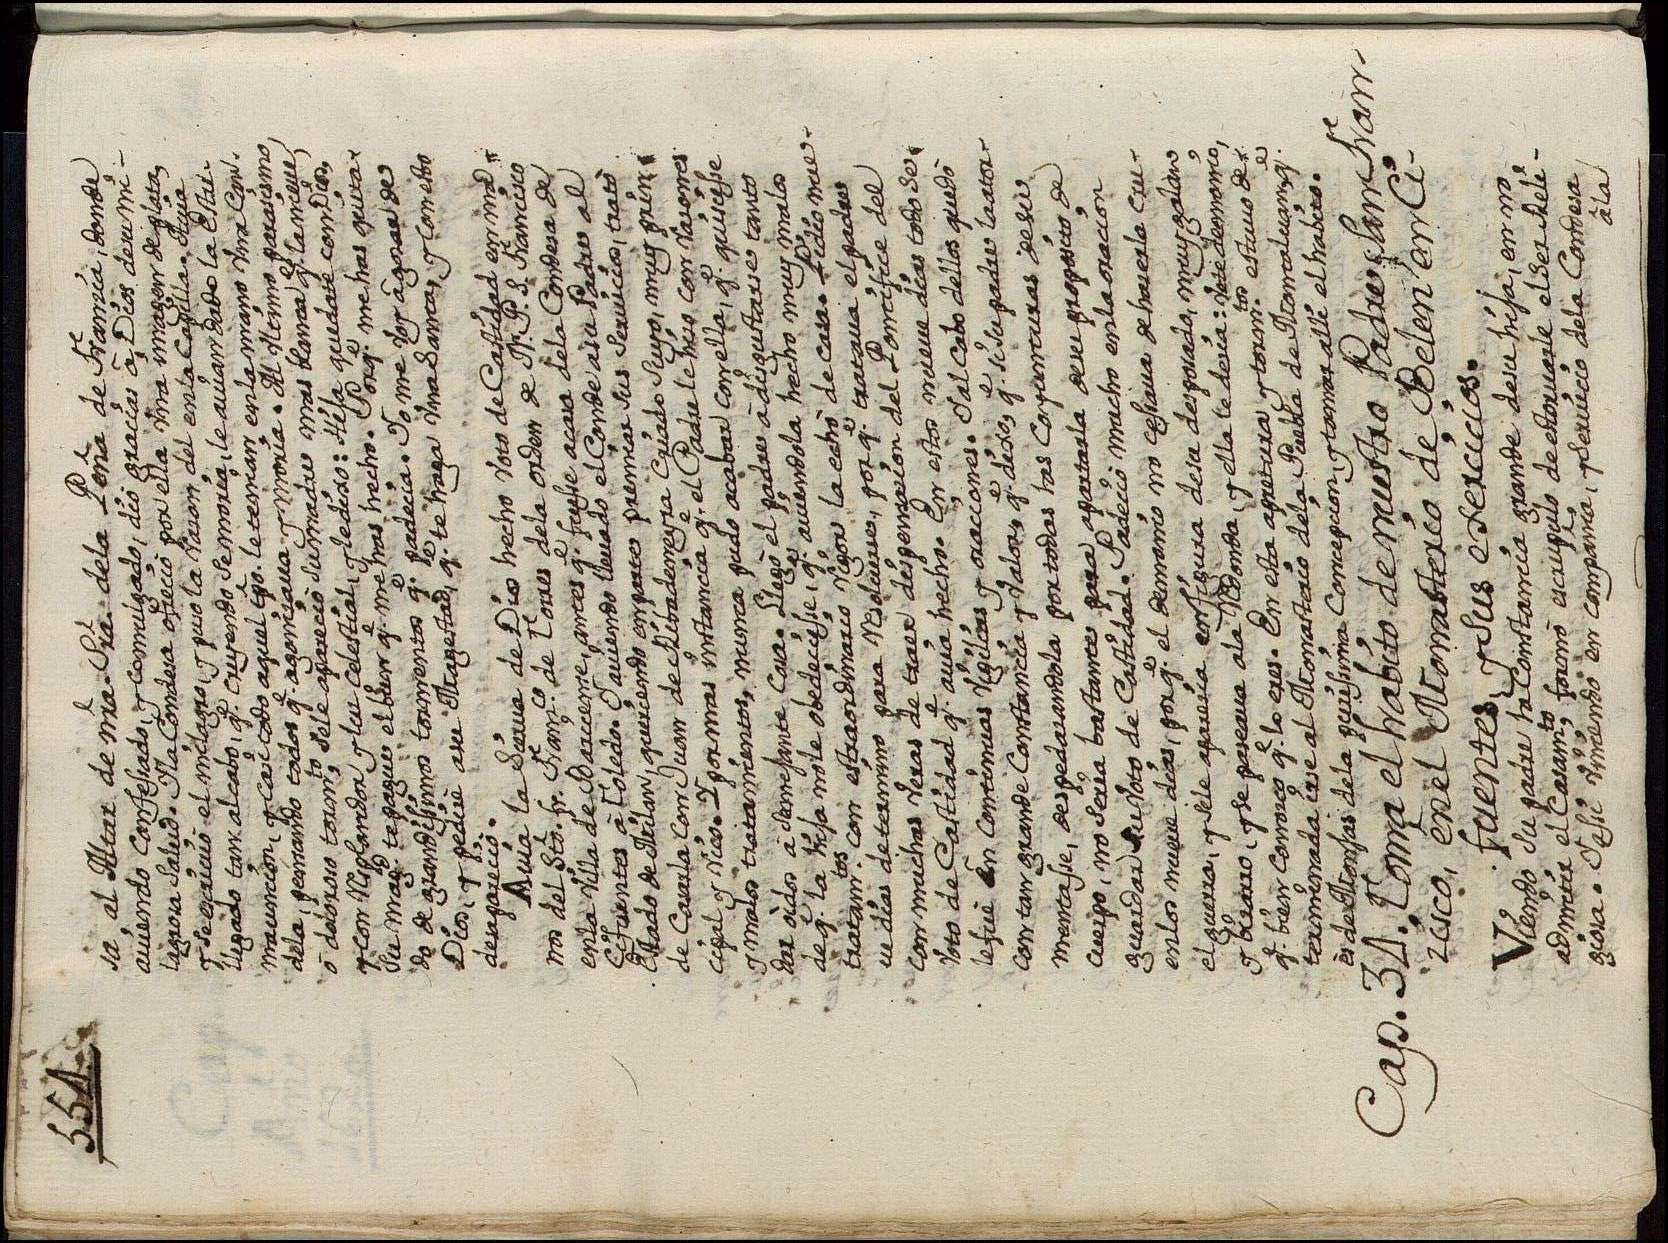 554.
sa al Altar de nra. Sra. dela Peña de Francia, donde
auiendo Confessado, y comulgado, dio gracias à Dios de su mi-
lagrosa Salud. Y la Condesa ofrecio por ella vna imagen de plata,
y se escriuiò el milagro, y puso la razon del en la Capilla. Auia
llegado tan al cabo, qe. Creyendo se moria, le auian dado la Extre-
maunción, y casi todo aquel tpo. le tenian en la mano vna Can-
dela, pensando todos qe. agoniçaua, y moria. Al vltimo paracismo,
ô doloroso tauamto. se le apareciò su madre mas blanca qe. la nieue,
y con resplandor, y luz celestial, y le dixo: Hija quedate con Dios,
su magd. te pague el bien qe. me has hecho. Porqe. me has quita-
do de grandissimos tormentos qe. padecia. Yo me voy à gozar de
Dios, y pedirè a su Magestad, qe. te haga vna Santa, y con esto
desapareciò.
Auia la Sierua de Dios hecho voto de Castidad en ma-
nos del Sto. fr. Franco. de Torres dela orden de N. P. S. Francisco
en la Villa de Baucerne, antes qe. fuesse a casa dela Condesa de
Cifuentes à Toledo. Y auiendo lleuado el Conde a su Padre al
Estado de Milan, queriendo en parte premiar sus Seruicios, tratò
de Casarla con Juan de Mondra criado suyo, muy prin-
cipal, y rico. Y por mas instancia qe. el Padre le hizo con razones
y malos tratamientos, nunca pudo acabar con ella, qe. quisiesse
dar oidos à semejante cosa. Llegò el padre à disgustarse tanto
de qe. la hija no le obedeciesse, qe. auiendola hecho muy malos
tratamtos. con estraordinario rigor la echò de casa. Pidio nue-
ue dias de termino para resoluerse, porqe. trataua el padre
con muchas veras de traer dispensacion del Pontifice del
Voto de Castidad qe. auia hecho. En estos nueue dias todo se
le fuè en continuas vigilias, y oraciones. Y al Cabo dellos quedò
con tan grande Constancia y valor, qe. dixo, qe. si su padre la ator-
mentasse, despedaçandola por todas las Coyunturas de su
cuerpo, no seria bastante para apartarla de su proposito de
guardar su voto de Castidad. Padeciò mucho en la oracion
en los nueue dias, porqe. el demonio no cessaua de hacerla cru-
el guerra, y se le aparecia en figura de su desposado, muy galan
y bizarro, y se paseaua a la redonda, y ella le decia: vete demonio,
qe. bien conozco qe. lo eres. En esta apretura, y tormto. estuuo de-
terminada irse al Monasterio dela Puebla de Montaluan, qe.
es de Monjas dela purissima Concepcion, y tomar alli el habito.
Cap. 31. Toma el habito de nuestro Padre San Fran-
zisco, en el Monasterio de Belen en Ci-
fuentes, y sus exercicios.
Viendo su padre la Constancia grande de su hija, en no
admitir el Casamto. formò escrupulo de estoruarle el ser Reli-
giosa. Y assi viniendo en compañia, y seruicio dela Condesa
à la